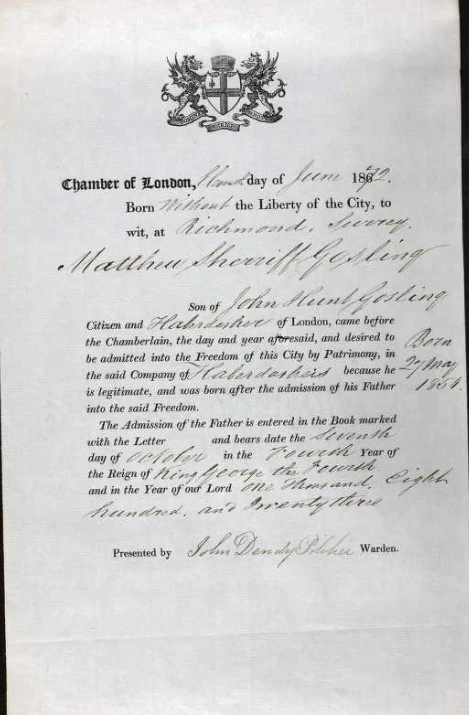 Chamber of London, day of June 1872.
Born Without the Liberty of the City, to
wit, at Richmond, Surrey.
Matthew Sherriff Gosling
Son of John Hunt Gosling
Citizen and Haberdasher of London, came before
the Chamberlain, the day and year aforesaid, and desired to
be admitted into the Freedom of this City by Patrimony, in
the said Company of Haberdashers because he
is legitimate, and was born after the admission of his Father
into the said Freedom.
Born
27 May
1854.
The Admission of the Father is entered in the Book marked
with the Letter and bears date the Seventh
day of October in the Fourth Year of
the Reign of King George the Fourth
and in the Year of our Lord One Thousand, Eight
hundred, and Twenty three
Presented by John Dendy Pilcher Warden.